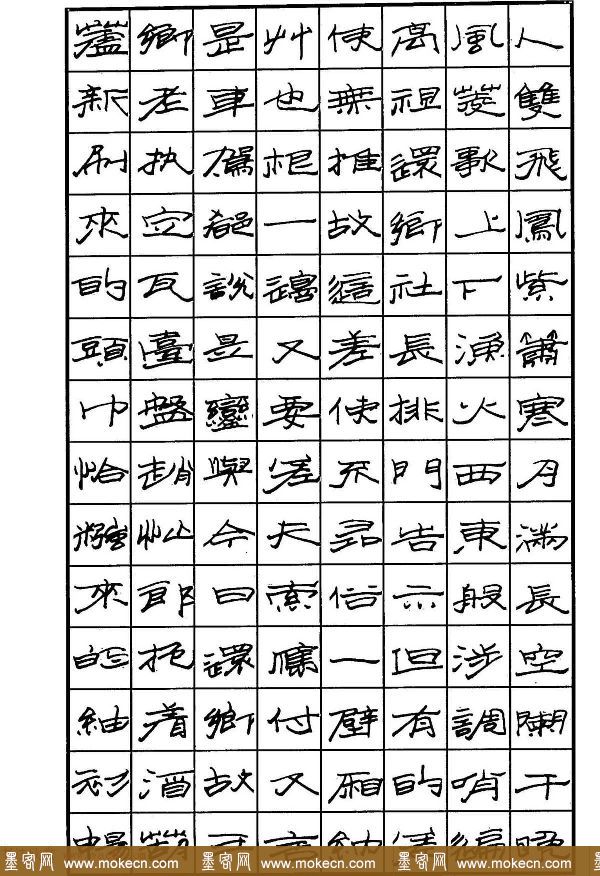 人雙飛鳳紫簫寒月滿長空闌干晚
風菱歌上下漁火西東般涉調哨遍
高祖還鄉社長排門告示但有的差
使無推故這差使不尋俗一壁廂納
草也根一邊又要差夫索應付又言
是車駕都說是鑾輿今日還鄉故可
鄉老執定瓦臺盤趙忙郎抱着酒葫
蘆新刷來的頭巾恰糨來的紬衫暢
墨客网 www.mokecn.com 墨客网 www.mokecn.com 墨客网 www.mokecn.com